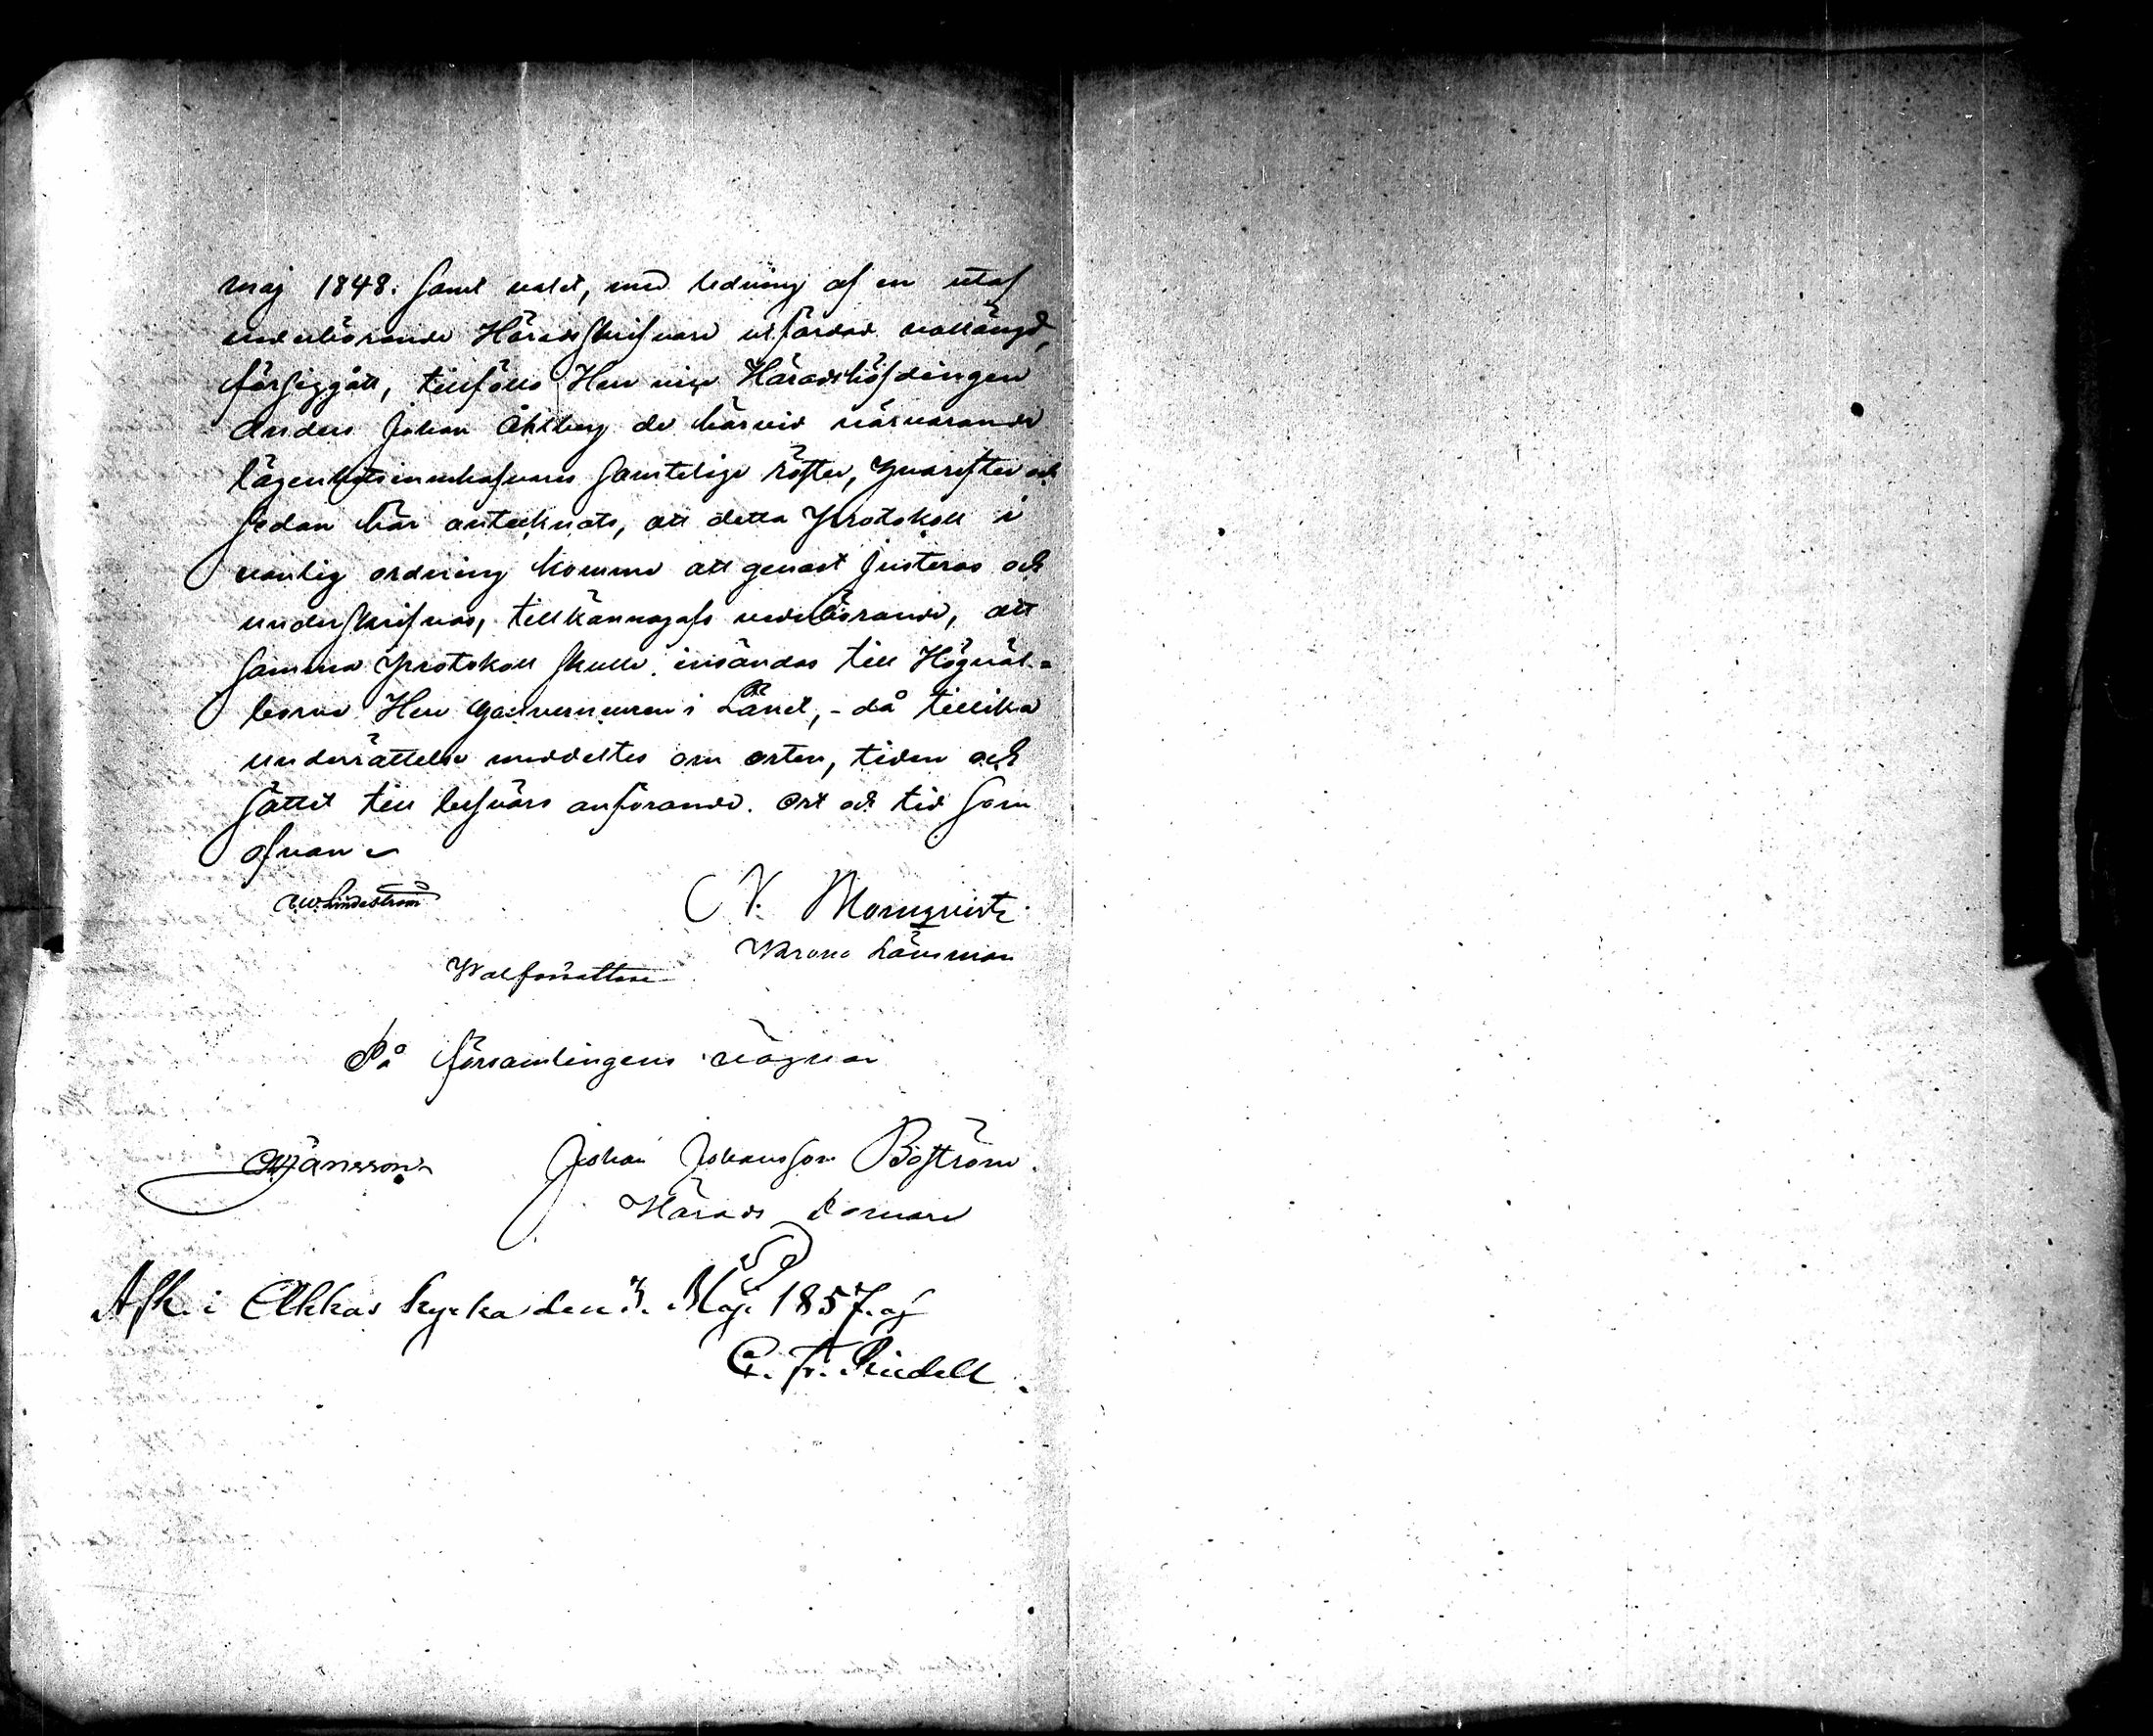 maj 1848. samt valet, med ledning af en utaf
vederbörande Häradsskrifvare utfärdad vallängd,
försiggått, tillföllo Herr vice Häradshöfdingen
Anders Johan Åhlberg de härvid närvarande
lägenhetsinnehafvares samtelige röster, hvarefter och
sedan här antecknats, att detta Protokoll i
vanlig ordning komme att genast justeras och
underskrifvas, tillkännagafs vederbörande, att
samma Protokoll skulle insändas till Högväl-
borne Herr Gouverneuren i Länet, - då tillika
underrättelse meddeltes om orten, tiden och
sättet till besvärs anförande. Ort och tid som
ofvan
Lindeström
Krono Länsman
Valförrättare
På församlingens vägnar
Jansson
Johan Johansson Boström
Härads Domare
i kyrka den 3. Maji 1857. af